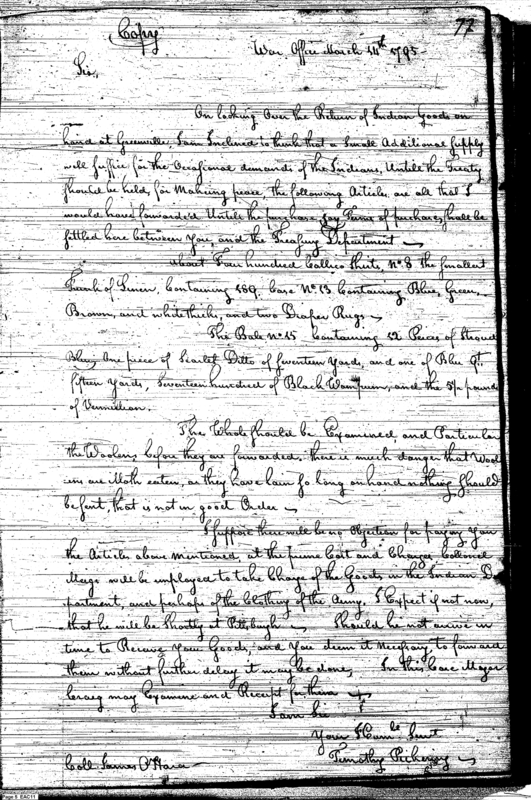 Copy
77
War Office March 14th 1795
Sir,
On looking Over the Return of Indian Goods on
hand at Greenville, I am Inclined to think that a Small Additional Supply
will Suffice for the Occasional demands of the Indians, Untill the Treaty
should be held, for Making peace, The following Articles are all that I
would have forwarded Untill the purchase, say Terms of purchase, shall be
settled here between You, and the Treasury Department
About Four hundred Callico Shirts, No. 8 the smallest
Trunk of Linen, Containing 589, Case No. 13 Containing Blue, Green,
Brown, and white thicks, and two Draper Rugs,
The Bale No. 15 Containing 12 Peces of Stroud
Blue, One piece of Scarlet Ditto of Seventeen Yards, and one of Blue qt.
fifteen Yards, Seventeen hundred of Black Wampum, and the 54 pounds
of Vermillion.
The Whole should be Examined and Particular
the Woolens before they are forwarded, there is much danger that Wool
ens are Moth eaten, as they have lain so long on hand nothing should
be sent, that is not in good Order
I suppose there will be no Objection for paying You
the Articles above mentioned, at the prime Cost and Charges, Colonel
Meigs will be employed to take Charge of the Goods in the Indian D
partment, and perhaps of the Clothing of the Army. I Expect if not now,
that he will be Shortly at Pittsburgh Should he not arrive in
time to Receive Your Goods, and You deem it Necessary, to forward
them without further delay it may be done, In this Case Major
Craig may Examine and Receipt for them
I am Sir
Your Humble Servt
Timothy Pickering
Coll James O'Hara
Page 5 EAC11